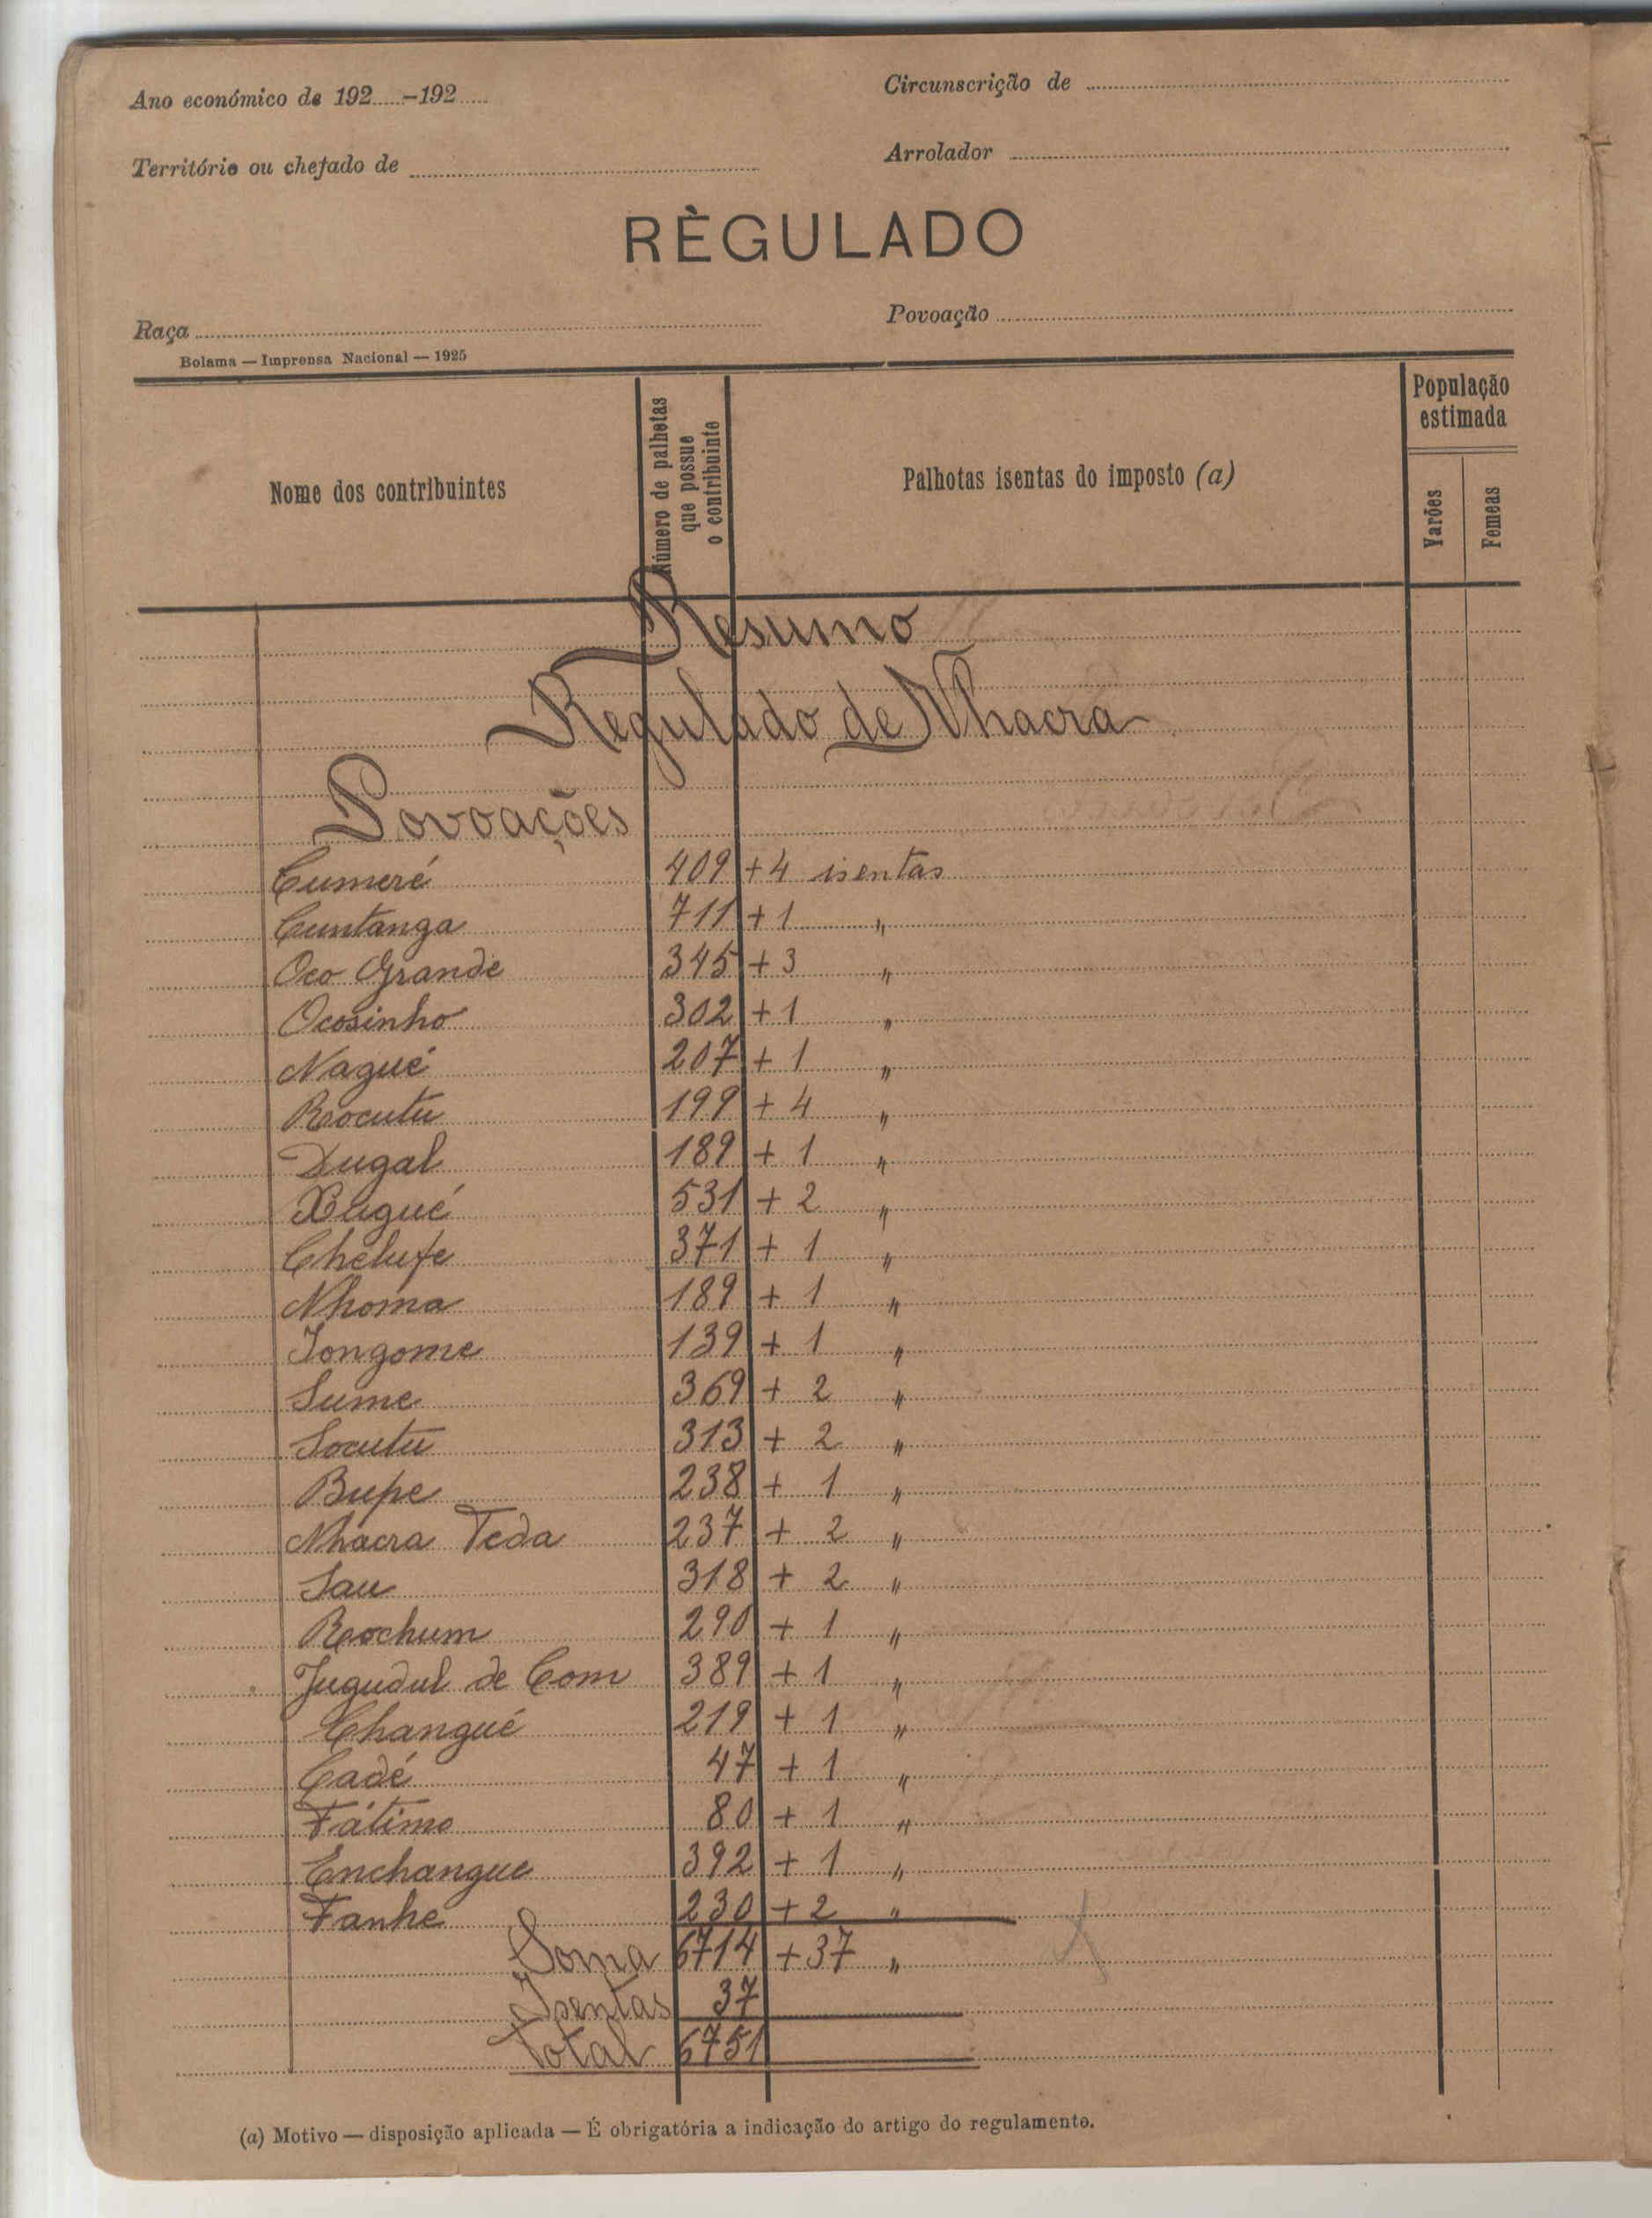 Ano económico de 192.....-192.....
Circunscrição de
Território ou chefado de
Arrolador
RÈGULADO
Raça
Povoação
Bolama — Imprensa Nacional — 1925
Nome dos contribuintes
Número de palhetas que possue o contribuinte
Palhotas isentas do imposto (a)
População estimada
Varões
Femeas
Resumo
Regulado de Nhacra
Povoações
Cumeré 409 + 4 isentas
Cuntanga 711 + 1 "
Oco Grande 345 + 3 "
Ocosinho 302 + 1 "
Nagué 207 + 1 "
Rocutu 199 + 4 "
Dugal 189 + 1 "
Bugué 531 + 2 "
Chelufe 371 + 1 "
Nhoma 189 + 1 "
Jongome 139 + 1 "
Sume 369 + 2 "
Socutu 313 + 2 "
Bupe 238 + 1 "
Nhacra Teda 237 + 2 "
Sau 318 + 2 "
Rochum 290 + 1 "
Jugudul de Com 389 + 1 "
Changué 219 + 1 "
Cadé 47 + 1 "
Fátimo 80 + 1 "
Enchangue 392 + 1 "
Fanhe 230 + 2 "
Soma 6714 + 37 "
Isentas 37
Total 6751
(a) Motivo — disposição aplicada — É obrigatória a indicação do artigo do regulamento.